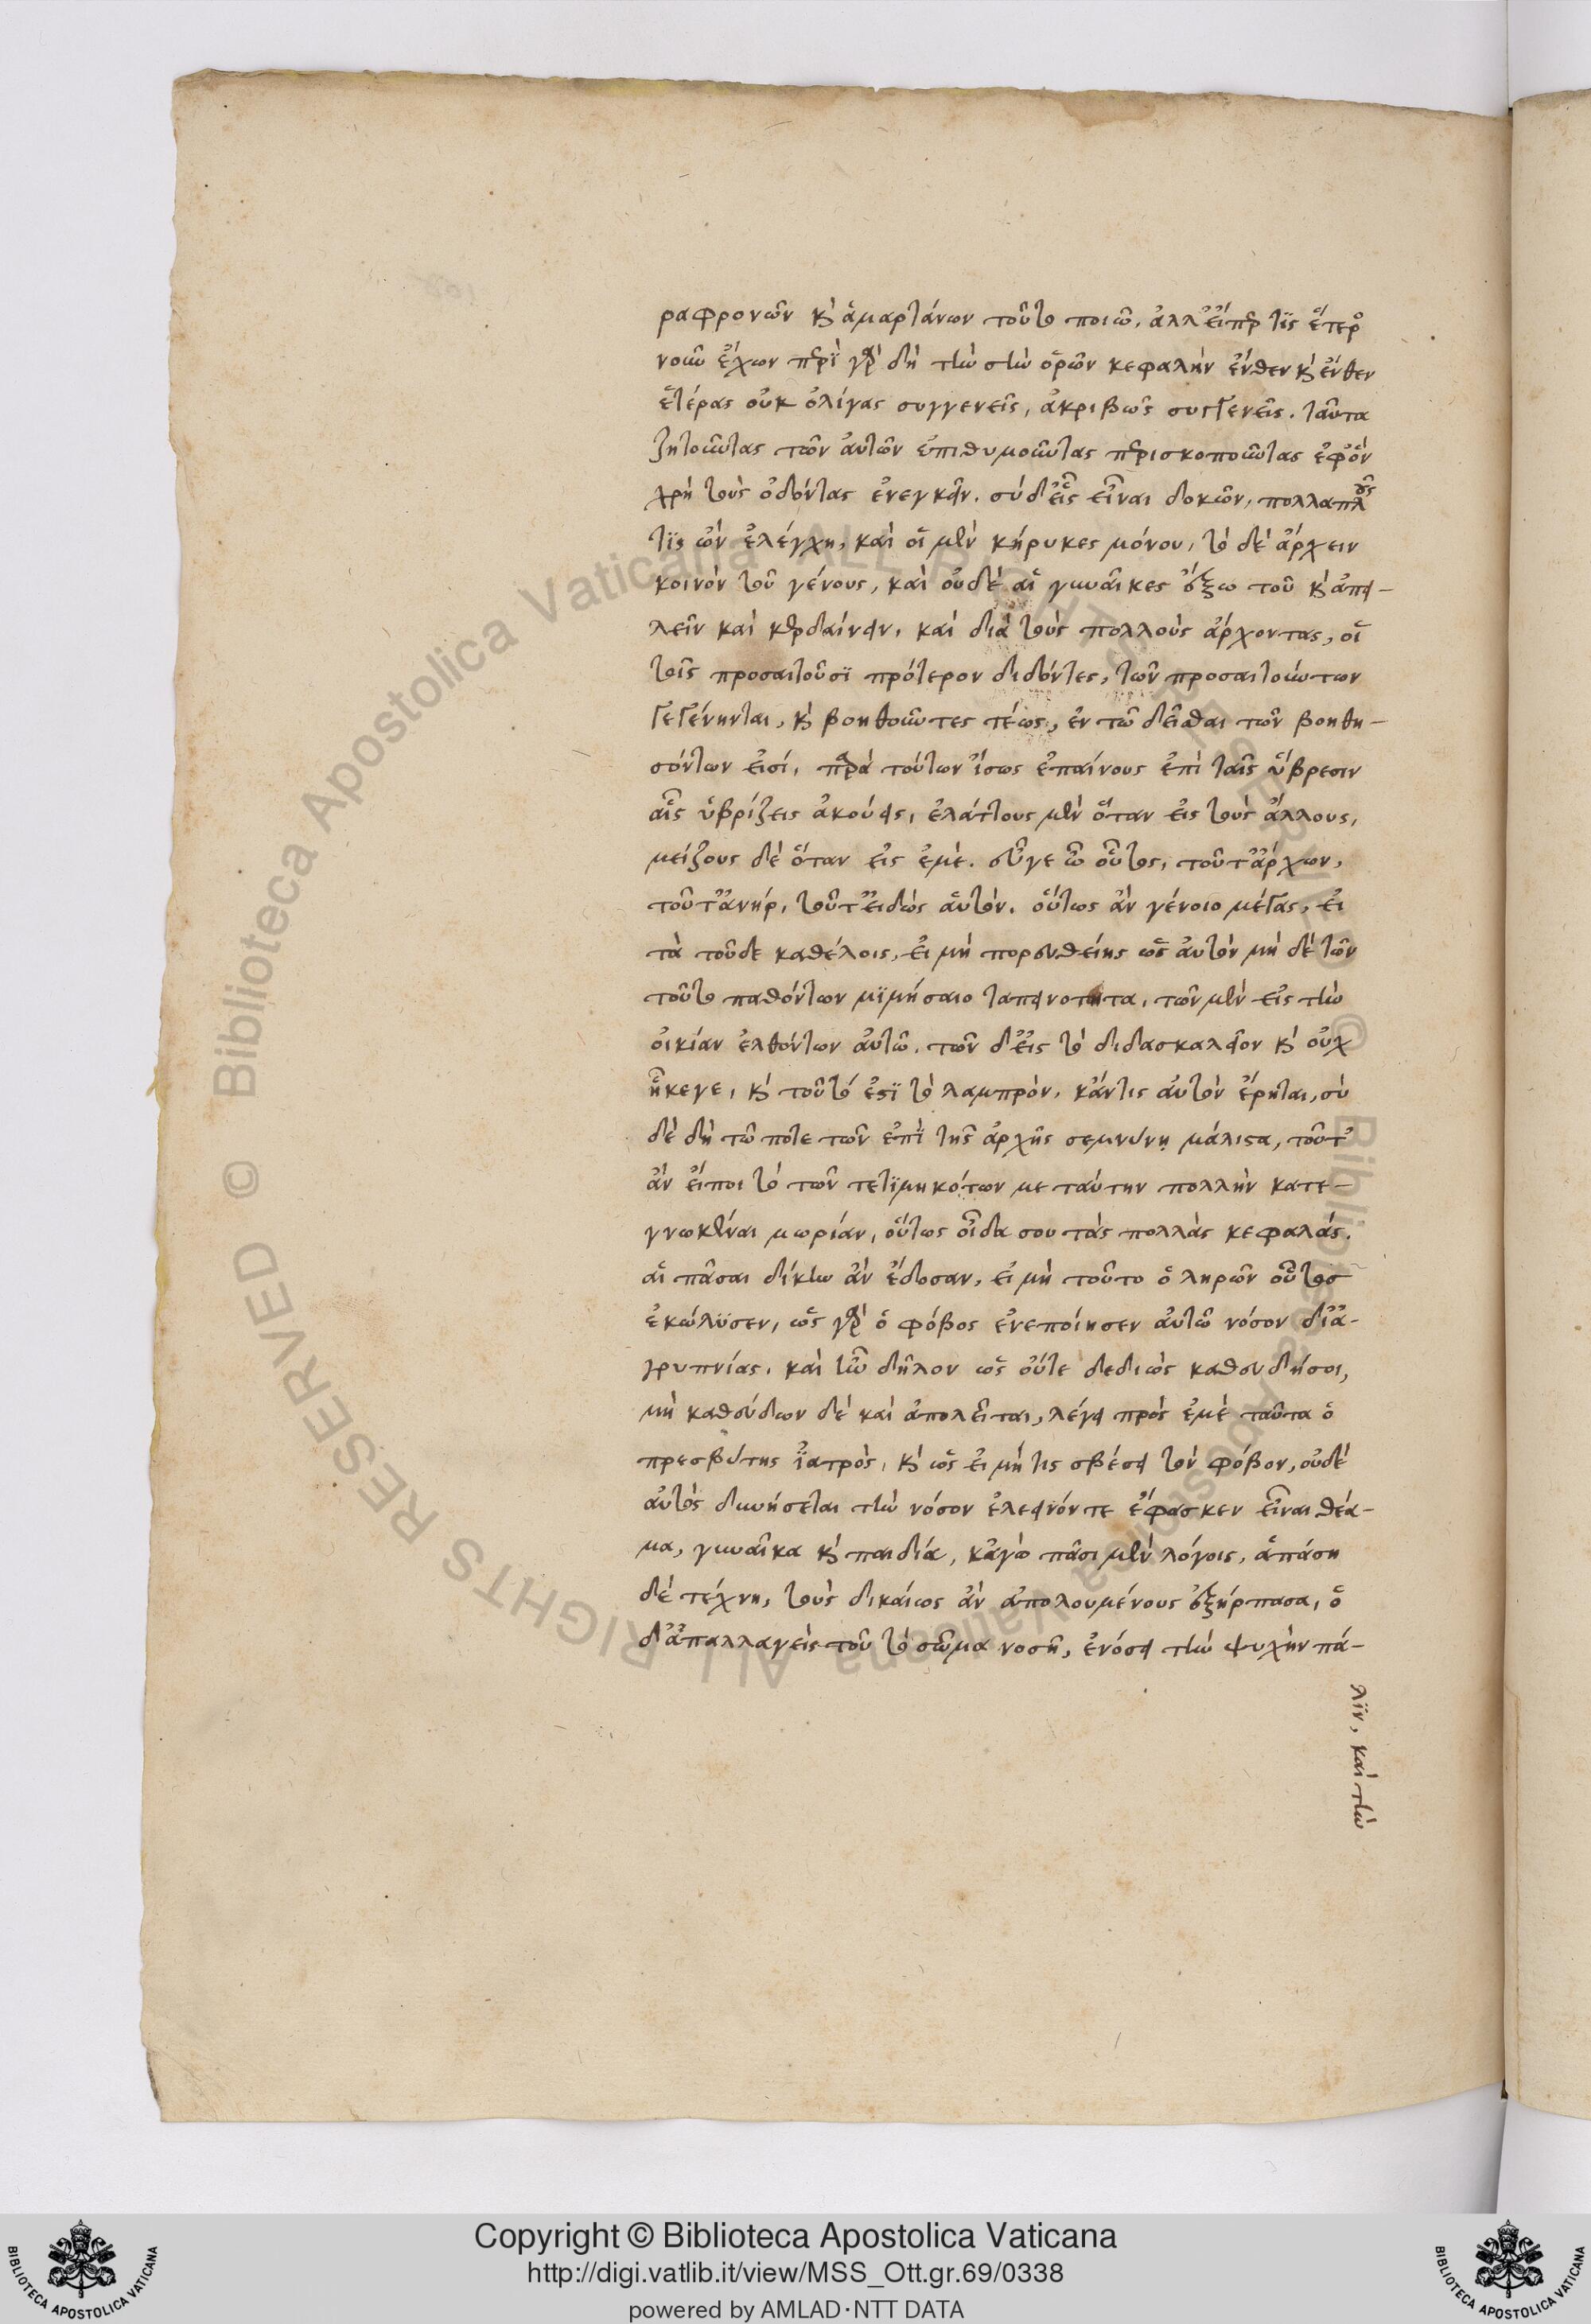 ραφρονῶν κ̀ ἁμαρτάνων τοῦτο ποιῶ. ἀλλ' εἴπερ τϊς ἕτερος
νοῦν ἔχων περϊ γὰρ δὴ τὴν σὴν ὁρῶν κεφαλὴν ἔνθεν κ̀ ἔνθεν
ἑτέρας οὐκ ὀλίγας συγγενεῖς, ἀκριβῶς συγγενεῖς. ταῦτα
ζητούντας τῶν αὐτῶν ἐπιθυμούντας περισκοπούντας ἐφ' ὃν
χρὴ τοὺς ὀδόντας ἐνεγκεῖν. σὺ δ' εἷς εἶναι δοκῶν, πολλαπλοῦς
τϊς ὢν ἐλέγχη, καὶ οἱ μὲν κήρυκες μόνου, τὸ δὲ ἄρχειν
κοινὸν τοῦ γένους, καὶ οὐδὲ αἱ γυναῖκες ἔξω τοῦ κ̀ ἀπει-
λεῖν καὶ κερδαίνειν. καὶ διὰ τοὺς πολλοὺς ἄρχοντας, οἱ
τοῖς προσαιτοῦσϊ πρότερον διδόντες, τῶν προσαιτούντων
γεγένηνται, κ̀ βοηθοῦντες τέως, ἐν τῶ δεῖσθαι τῶν βοηθη-
σόντων εἰσί, παρὰ τούτων ἴσως ἐπαίνους ἐπὶ ταῖς ὕβρεσιν
αἷς ὑβρίζεις ἀκούεις, ἐλάττους μὲν ὅταν εἰς τοὺς ἄλλους,
μείζους δὲ ὅταν εἰς ἐμὲ. εὖγε ὦ οὗτος, τοῦτ' ἄρχων,
τοῦτ' ἀνήρ, τοῦτ' εἰδὼς αὑτὸν. οὕτως ἂν γένοιο μέγας, εἰ
τὰ τοῦδε καθέλοις, εἰ μὴ πορευθείης ὡς αὐτὸν μὴ δὲ τῶν
τοῦτο παθόντων μϊμήσαιο ταπεινότητα, τῶν μὲν εἰς τὴν
οἰκίαν ἐλθόντων αὐτῶ. τῶν δ' εἰς τὸ διδασκαλεῖον κ̀ οὐχ
ἧκεγε, κ̀ τοῦτό ἐστϊ τὸ λαμπρὸν. κἄντις αὐτὸν ἔρηται, σὺ
δὲ δὴ τῶ ποτε τῶν ἐπϊ τῆς ἀρχῆς σεμνύνῃ μάλιστα, τοῦτ'
ἂν εἴποι τὸ τῶν τετϊμηκότων με ταύτην πολλὴν κατε-
γνωκέναι μωρίαν, οὕτως οἶδα σου τὰς πολλὰς κεφαλάς.
αἳ πᾶσαι δίκην ἂν ἔδοσαν, εἰ μὴ τοῦτο ὁ ληρῶν οὗτοσ
ἐκώλϋσεν, ὡς γὰρ ὁ φόβος ἐνεποίησεν αὐτῶ νόσον δι' ἀ-
γρυπνίας. καὶ ἦν δῆλον ὡς οὔτε δεδιὼς καθευδήσοι,
μὴ καθεύδων δὲ καὶ ἀπολεῖται, λέγει πρὸς ἐμὲ ταῦτα ὁ
πρεσβύτης ἰατρὸς, κ̀ ὡς εἰ μή τις σβέσει τὸν φόβον, οὐδὲ
αὐτὸς δυνήσεται τὴν νόσον ἐλεεινόν τε ἔφασκεν εἶναι θέα-
μα, γυναῖκα κ̀ παιδία, κἀγὼ πᾶσι μὲν λόγοις, ἁπάση
δὲ τέχνη, τοὺς δικαίως ἂν ἀπολουμένους ἐξήρπασα, ὁ
δ' ἀπαλλαγεὶς τοῦ τὸ σῶμα νοσῆ, ἐνόσει τὴν ψυχὴν πά-
λϊν, καὶ τὴν
Copyright © Biblioteca Apostolica Vaticana
http://digi.vatlib.it/view/MSS_Ott.gr.69/0338
powered by AMLAD·NTT DATA